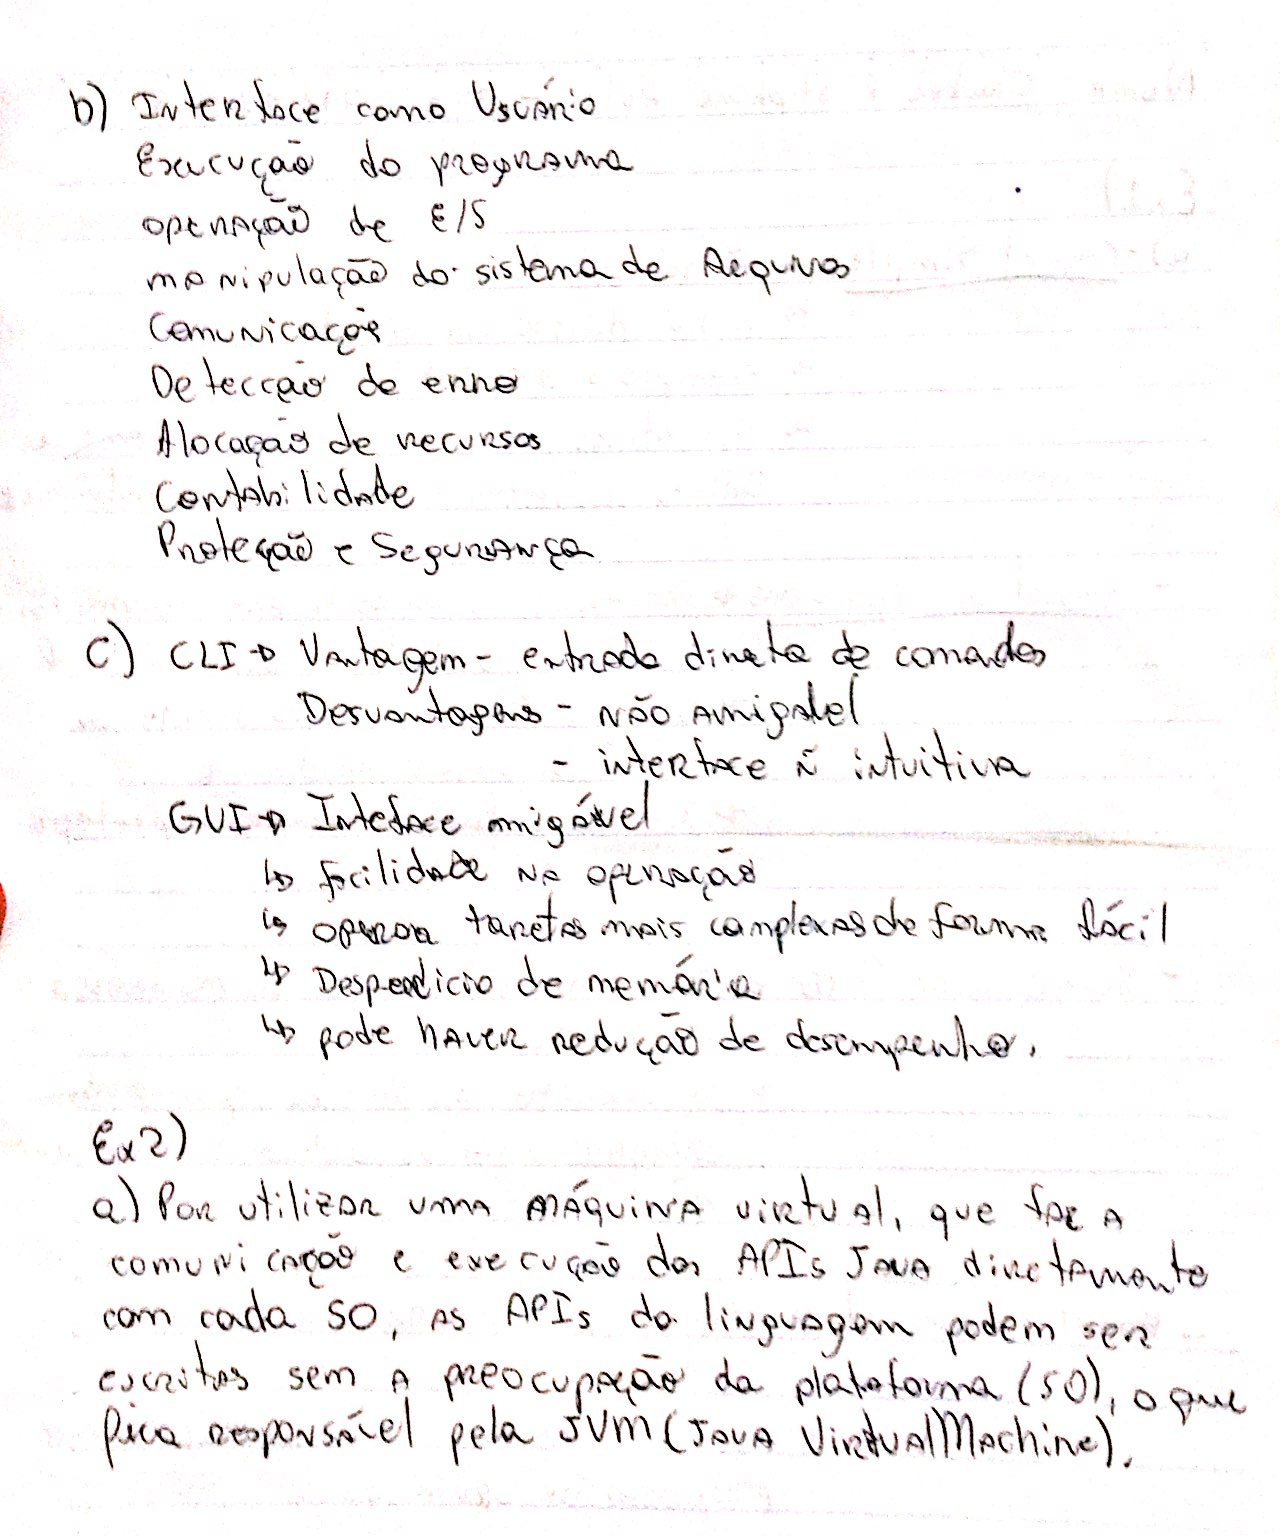 b) Interface como Usuário
Execução do programa
operação de E/S
manipulação do sistema de Arquivos
Comunicação
Detecção de erro
Alocação de recursos
Contabilidade
Proteção e Segurança
c) CLI → Vantagem - entrada direta de comandos
Desvantagens - não amigável
- interface ñ intuitiva
GUI → Inteface amigável
↳ facilidade na operação
↳ operar tarefas mais complexas de forma fácil
↳ Desperdicio de memória
↳ pode haver redução de desempenho.
Ex2)
a) Por utilizar uma máquina virtual, que faz a
comunicação e execução das APIs Java diretamente
com cada SO, as APIs da linguagem podem ser
escritas sem a preocupação da plataforma (SO), o que
fica responsável pela JVM (Java Virtual Machine).